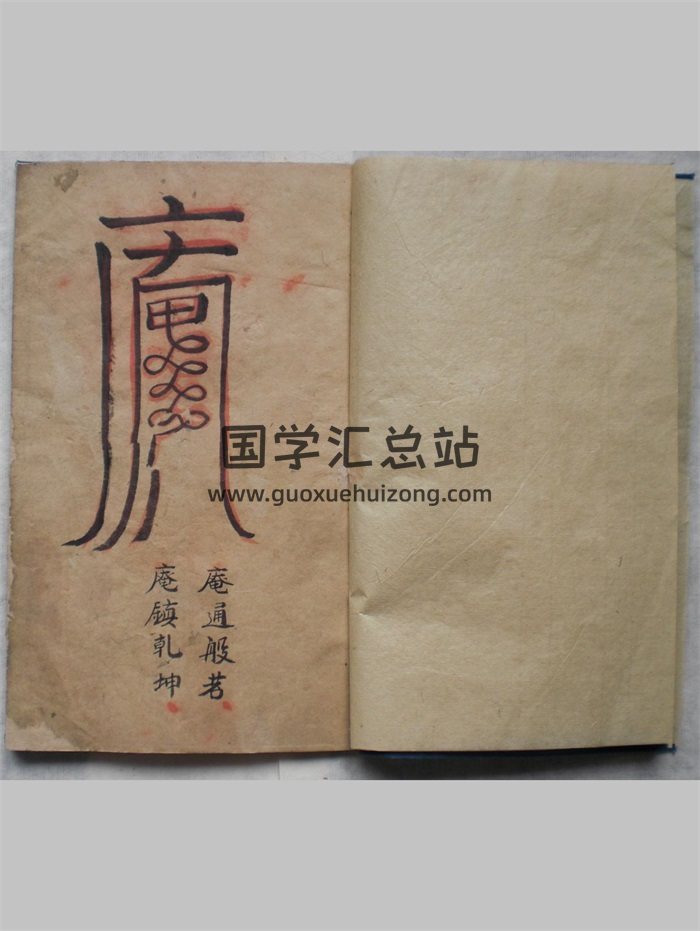 庵通般若
庵鎮乾坤
国学汇总站
www.guoxuehuizong.com